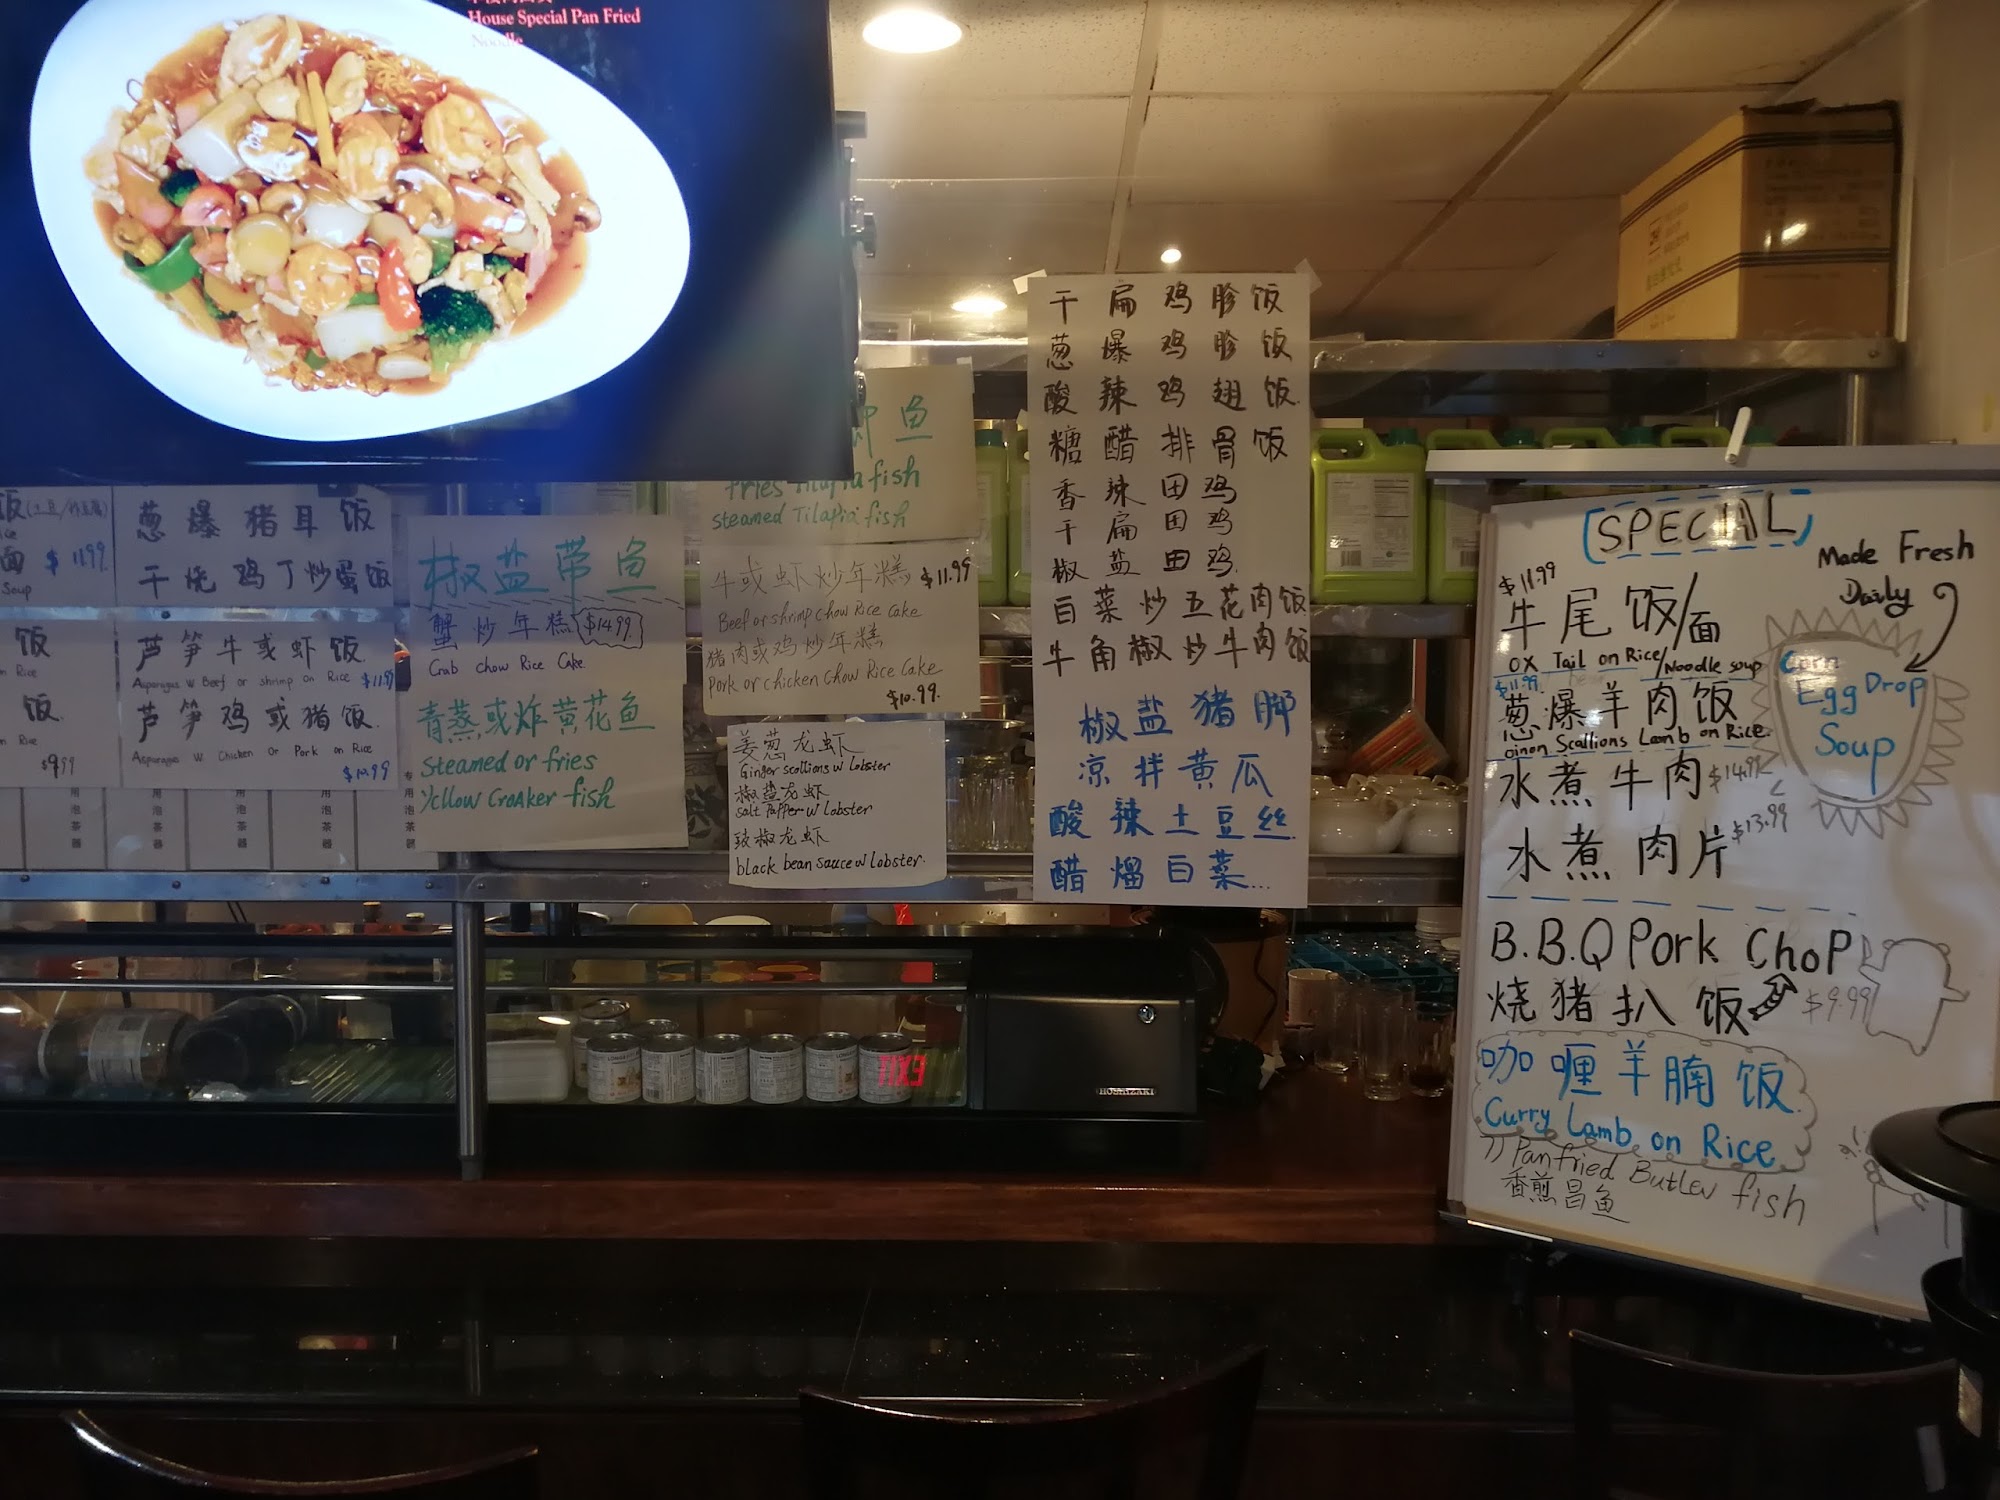 House Special Pan Fried
Noodle
饭(土豆/
面 $11.99
Soup
饭
Rice
饭
Rice
$9.99
葱爆猪耳饭
干烧鸡丁炒蛋饭
芦笋牛或虾饭
Asparagus w Beef or shrimp on Rice $11.99
芦笋鸡或猪饭
Asparagus w Chicken or Pork on Rice
$10.99
专用泡茶器
椒盐带鱼
蟹炒年糕 $14.99
Crab chow Rice Cake
青蒸或炸黄花鱼
Steamed or fries
Yellow Croaker fish
鱼
fries Tilapia fish
steamed Tilapia fish
牛或虾炒年糕 $11.99
Beef or shrimp chow Rice Cake
猪肉或鸡炒年糕
Pork or chicken chow Rice Cake
$10.99.
姜葱龙虾
Ginger scallions w Lobster
椒盐龙虾
salt Pepper w Lobster
豉椒龙虾
black bean sauce w lobster.
干扁鸡胗饭
葱爆鸡胗饭
酸辣鸡翅饭.
糖醋排骨饭
香辣田鸡
干扁田鸡
椒盐田鸡.
白菜炒五花肉饭
牛角椒炒牛肉饭
椒盐猪脚
凉拌黄瓜
酸辣土豆丝.
醋熘白菜...
SPECIAL
Made Fresh
Daily
$11.99
牛尾饭/面
OX Tail on Rice/Noodle soup
$11.99
葱爆羊肉饭
oinon Scallions Lamb on Rice.
Corn
Egg Drop
Soup
水煮牛肉 $14.99
水煮肉片 $13.99
B.B.Q Pork Chop
烧猪扒饭 $9.99
咖喱羊腩饭.
Curry Lamb on Rice
Pan fried Butler fish
香煎昌鱼
HOSHIZAKI
EXIT